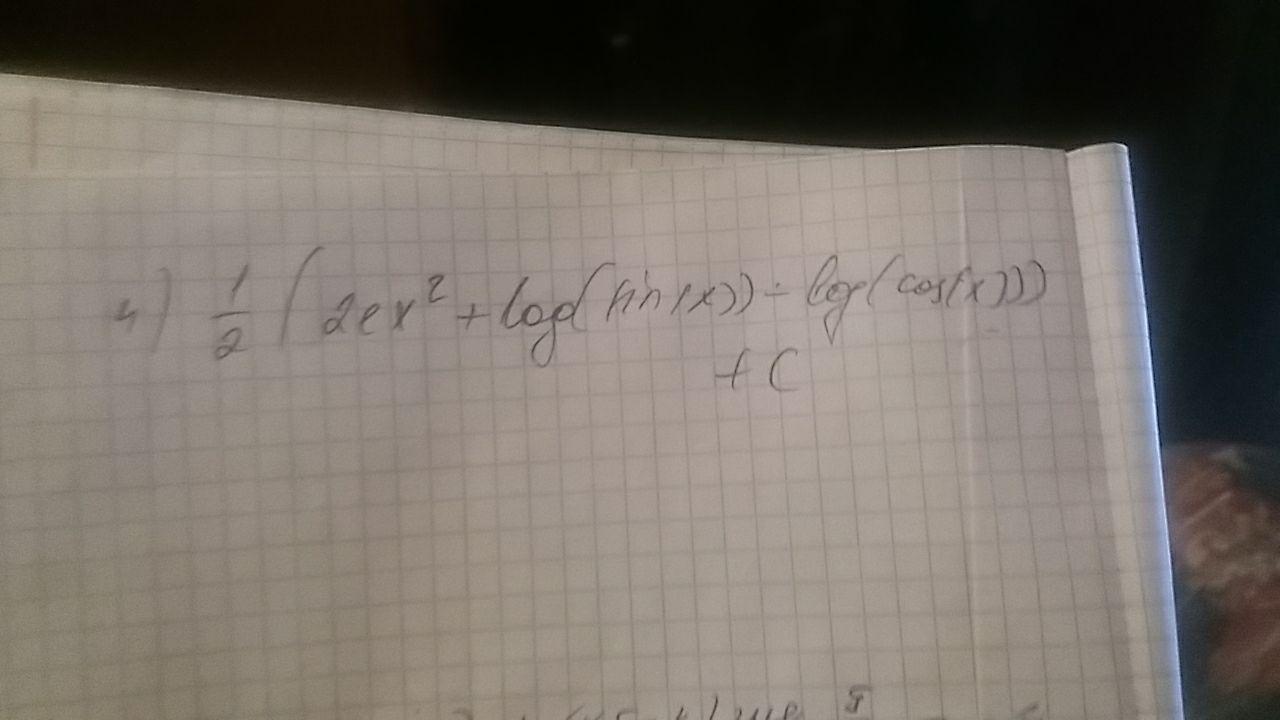 4) 1/2 (2ex² + log(sin(x)) - log(cos(x)))
+ C